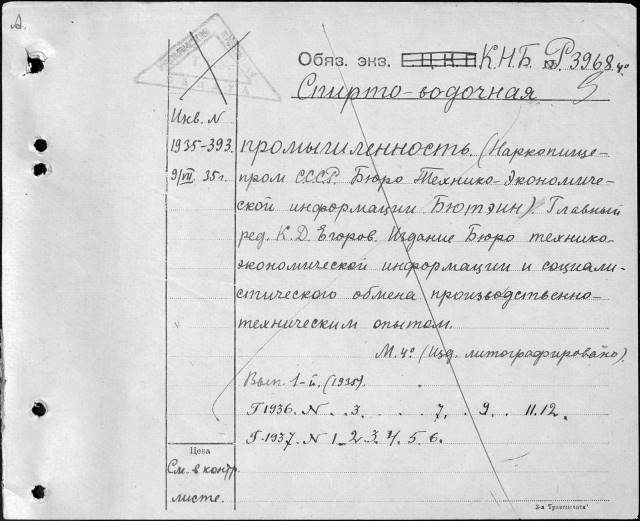 А.
Обяз. экз. Ц.К.П. К.Н.Б. № Р3968.4°
Спирто-водочная
5
Инв. N
1935-393.
9/VII 35 г.
промышленность. (Наркопище-
пром СССР. Бюро Технико-Экономиче-
ской информации Бютэин). Главный
ред. К.Д. Егоров. Издание Бюро технико-
экономической информации и социали-
стического обмена производственно-
техническим опытом.
М. 4° (Изд. литографировано).
Вып. 1-й. (1935).
Г 1936. N . . 3. . . . 7. . 9. . 11. 12.
Г. 1937. N 1. 2. 3. 4. 5. 6.
Цена
См. в контр.
листе.
2-я Трансвчать